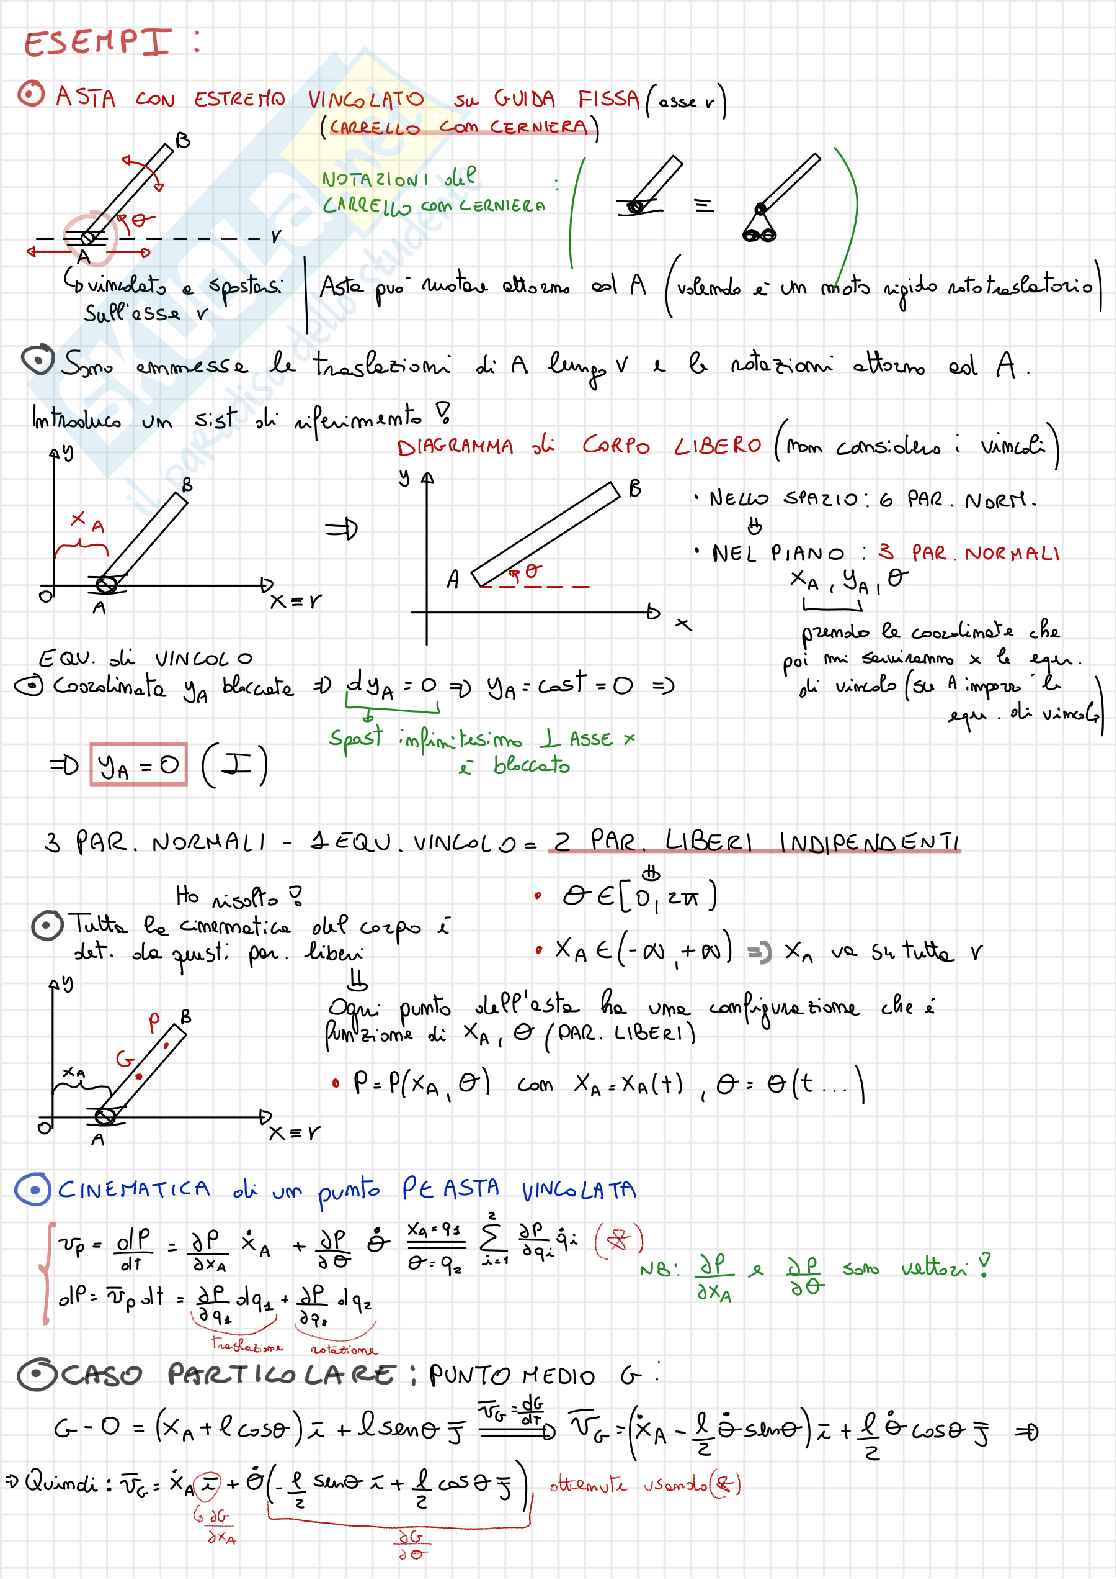 ESEMPI :
ASTA CON ESTREMO VINCOLATO su GUIDA FISSA (asse r)
(CARRELLO com CERNIERA)
B
NOTAZIONI del
CARRELLO com CERNIERA :
≡
θ
A
r
↳ vincolato a spostarsi
sull'asse r
Asta può ruotare attorno ad A (volendo è un moto rigido rototraslatorio)
Sono ammesse le traslazioni di A lungo r e le rotazioni attorno ad A.
Introduco un sist di riferimento!
DIAGRAMMA di CORPO LIBERO (non considero i vincoli)
y
B
x_A
O
A
x≡r
⇒
y
B
A
θ
x
• NELLO SPAZIO: 6 PAR. NORM.
⇓
• NEL PIANO : 3 PAR. NORMALI
x_A, y_A, θ
prendo le coordinate che
poi mi serviranno x le equ.
di vincolo (su A imporrò le
equ. di vincolo)
EQU. di VINCOLO
Coordinata y_A bloccata ⇒ dy_A = 0 ⇒ y_A = cost = 0 ⇒
Spost infinitesimo ⊥ ASSE x
è bloccato
⇒ y_A = 0 (I)
3 PAR. NORMALI - 1 EQU. VINCOLO = 2 PAR. LIBERI INDIPENDENTI
⇓
Ho risolto!
• θ ∈ [0, 2π)
Tutta la cinematica del corpo è
det. da questi par. liberi
• x_A ∈ (-∞, +∞) ⇒ x_A va su tutta r
⇓
Ogni punto dell'asta ha una configurazione che è
funzione di x_A, θ (PAR. LIBERI)
• P = P(x_A, θ) com x_A = x_A(t), θ = θ(t...)
y
P
B
G
x_A
O
A
x≡r
CINEMATICA di un punto P∈ASTA VINCOLATA
v_P = dP/dt = ∂P/∂x_A ẋ_A + ∂P/∂θ θ̇ = (x_A = q_1, θ = q_2) Σ_{i=1}^{2} ∂P/∂q_i q̇_i (*)
NB: ∂P/∂x_A e ∂P/∂θ sono vettori!
dP = v̄_P dt = ∂P/∂q_1 dq_1 + ∂P/∂q_2 dq_2
traslazione rotazione
CASO PARTICOLARE : PUNTO MEDIO G :
G - O = (x_A + l cosθ) ī + l senθ j̄ ⇒ (v̄_G = dG/dt) v̄_G = (ẋ_A - l/2 θ̇ senθ) ī + l/2 θ̇ cosθ j̄ ⇒
⇒ Quindi: v̄_G = ẋ_A ī + θ̇ (-l/2 senθ ī + l/2 cosθ j̄) ottenute usando (*)
↳ ∂G/∂x_A
∂G/∂θ